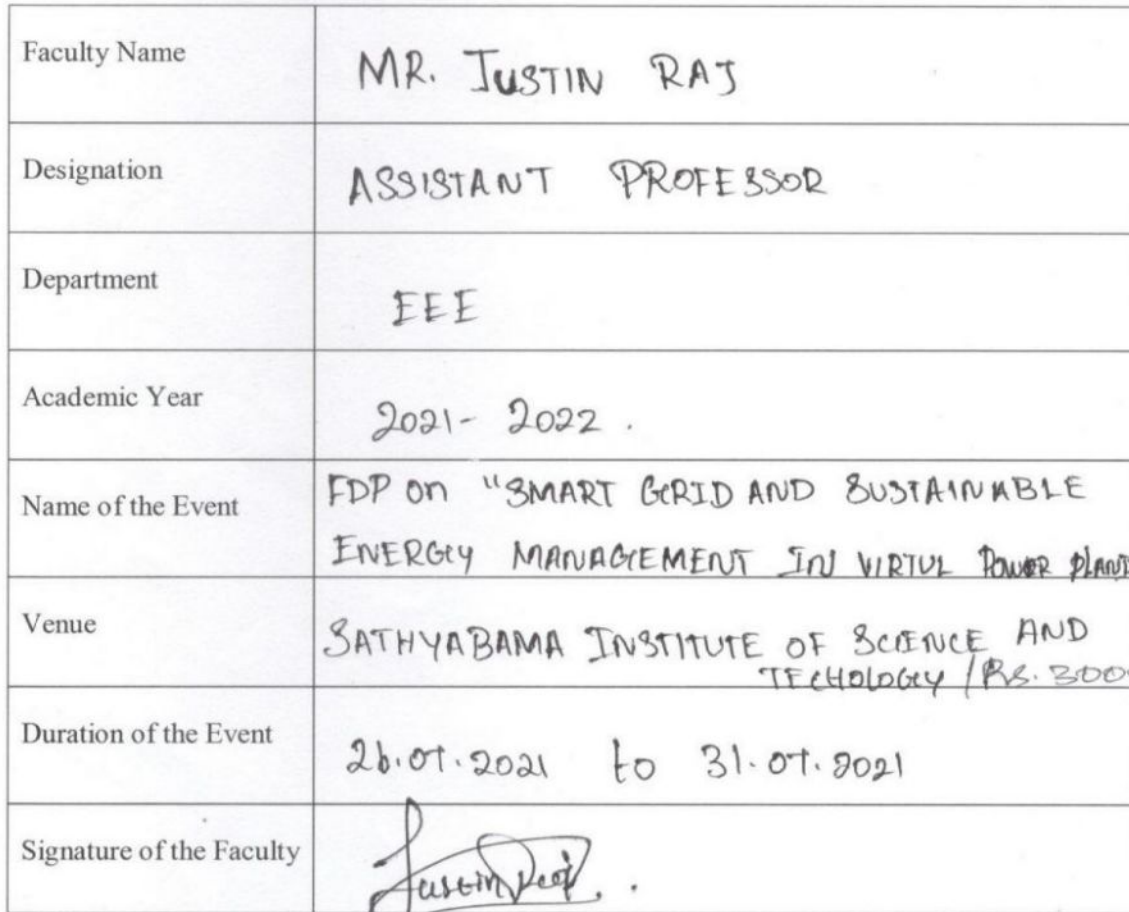 Faculty Name MR. JUSTIN RAJ
Designation ASSISTANT PROFESSOR
Department EEE
Academic Year 2021- 2022 .
Name of the Event FDP on "SMART GRID AND SUSTAINABLE
ENERGY MANAGEMENT IN VIRTUL POWER PLANT
Venue SATHYABAMA INSTITUTE OF SCIENCE AND
TECHOLOGY / Rs. 300
Duration of the Event 26.07.2021 to 31.07.2021
Signature of the Faculty Justin Raj